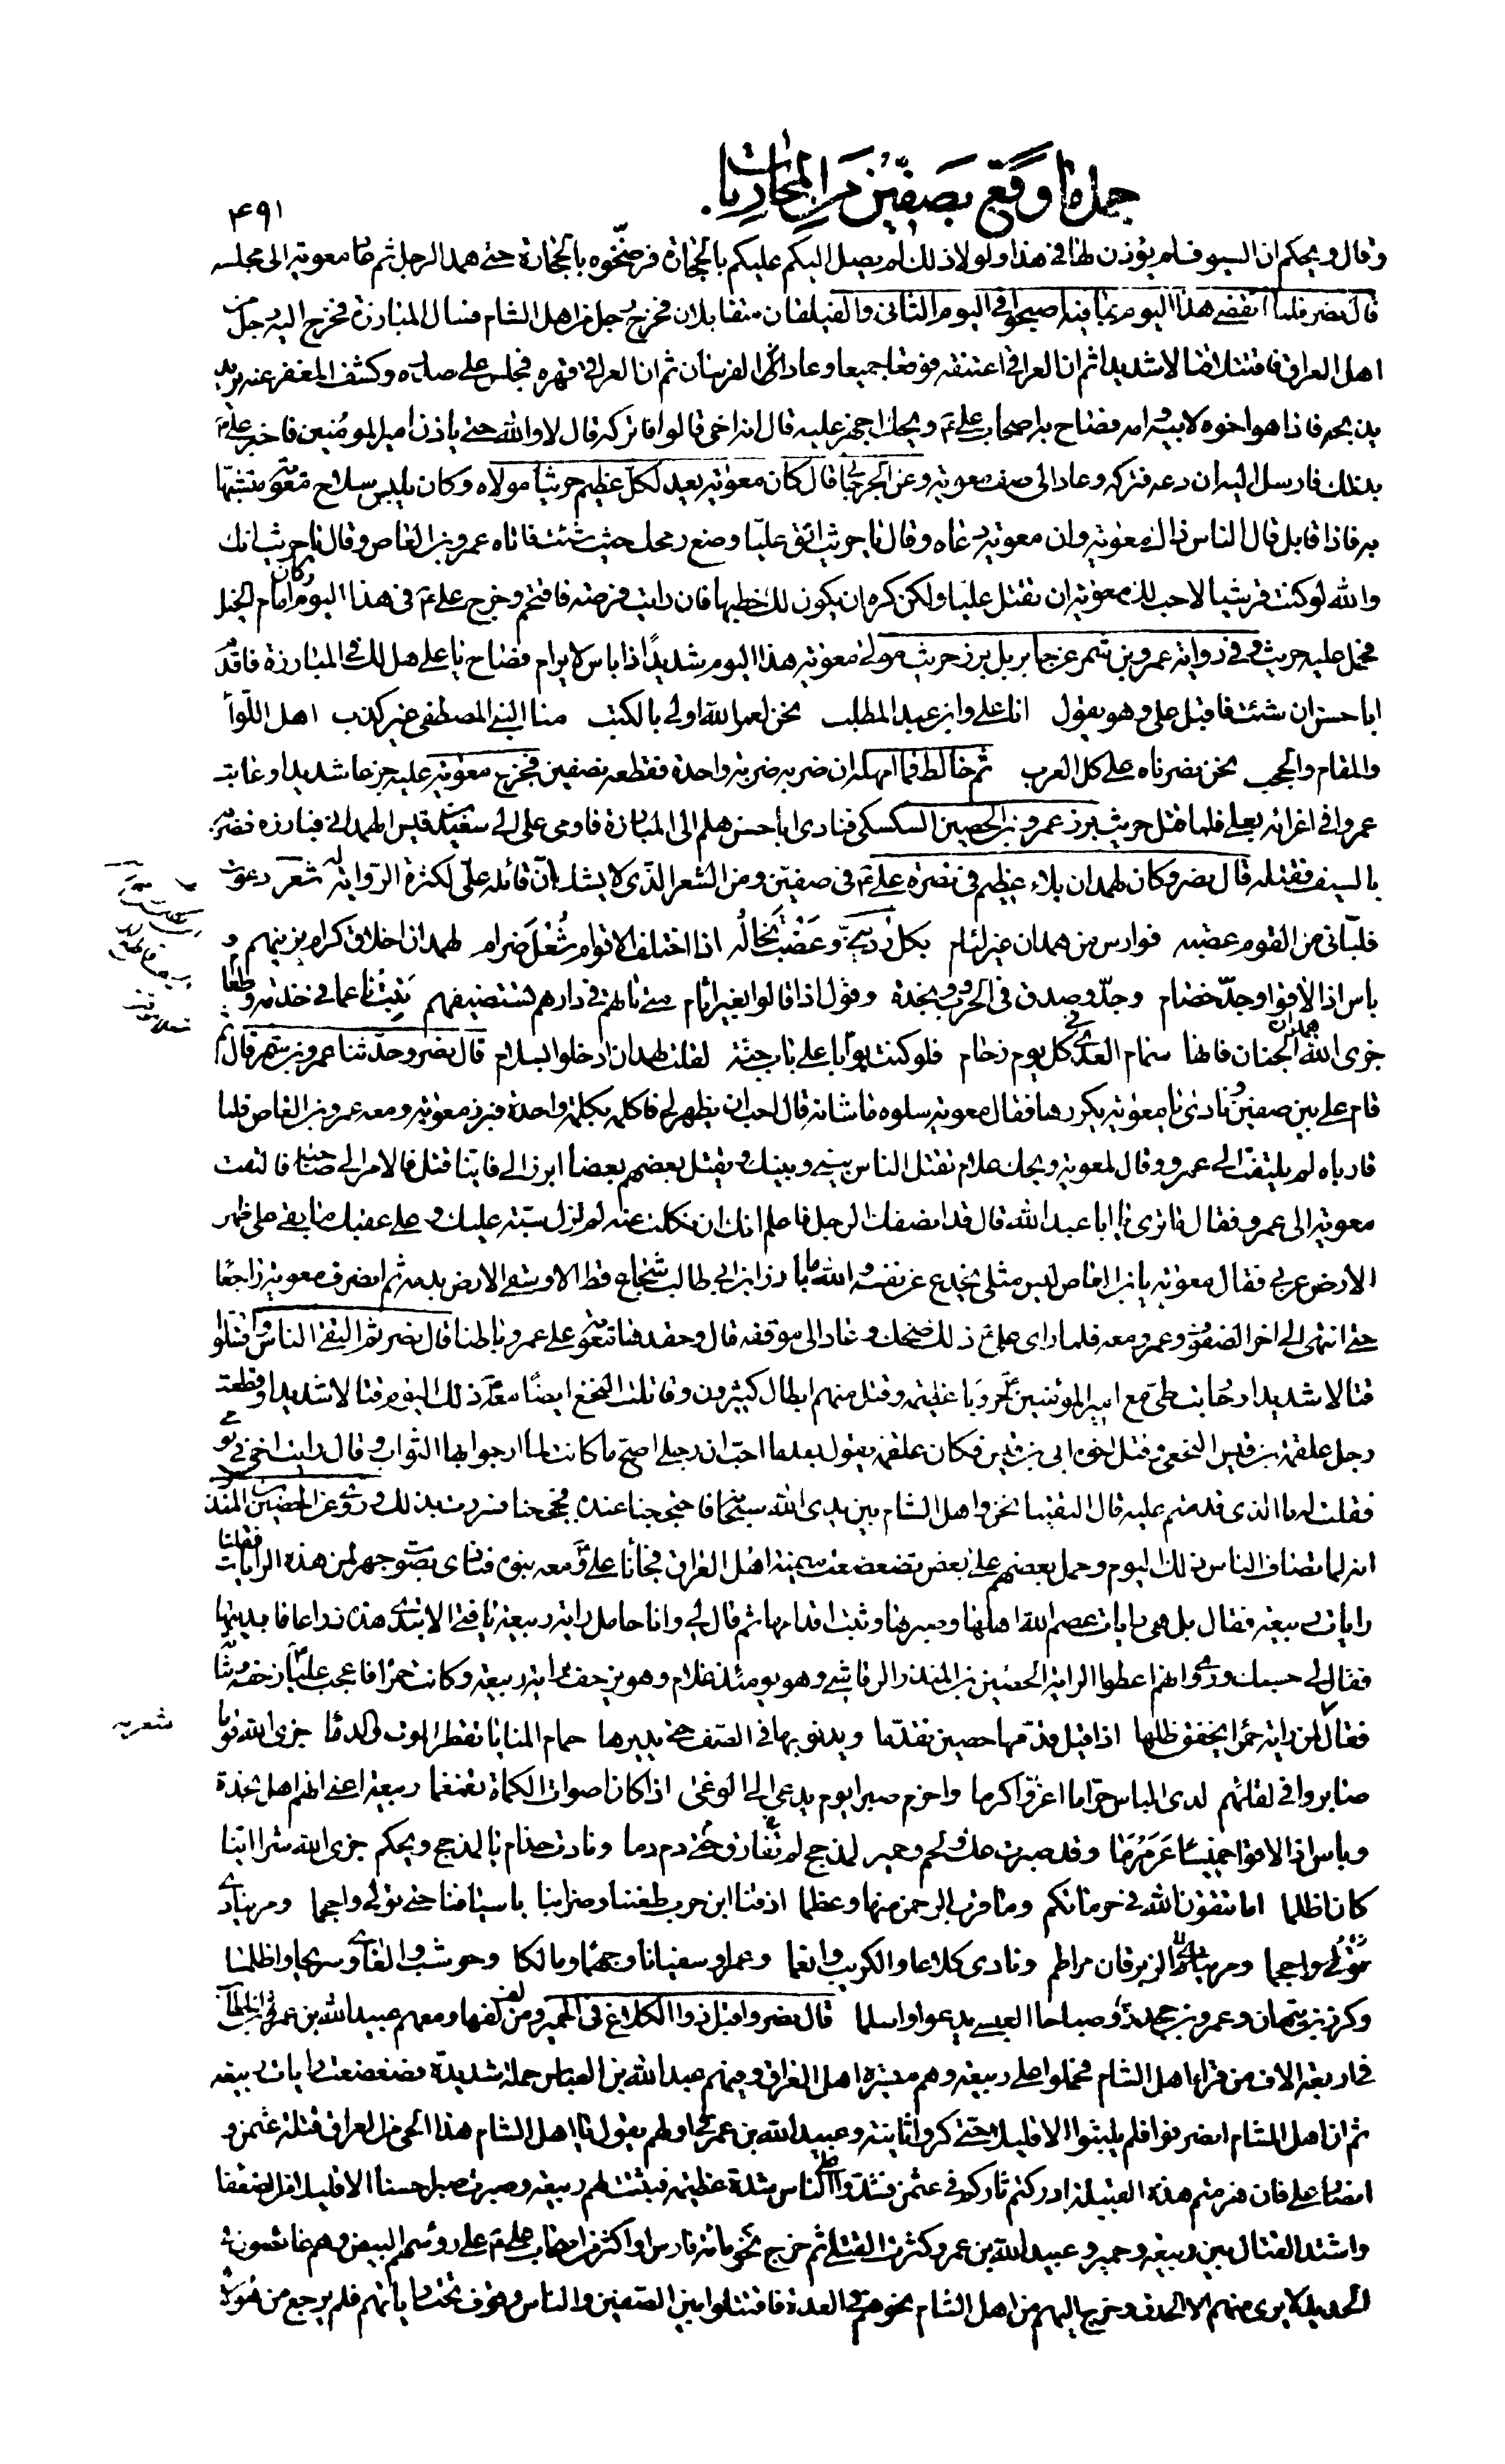 جملة ما وقع بصفين من المحاربات
۴۹۱
وقال ويحكم ان السيوف لم يؤذن لها في هذا ولولا ذلك لم يصل اليكم عليكم بالحجارة فرضخوه بالحجارة حتى همد الرجل ثم عاد معوية الى مجلسه
قال نصر فلما انقضى هذا اليوم بما فيه اصبحوا في اليوم الثاني والفيلقان متقابلان فخرج رجل من اهل الشام فسال المبارزة فخرج اليه رجل من
اهل العراق فاقتتلا قتالا شديدا ثم ان العراقي اعتنقه فوقعا جميعا وعاد الفرسان ثم ان العراقي قهره فجلس على صدره وكشف المغفر عنه يريد
يذبحه فاذا هو اخوه لابيه وامه فصاح به اصحاب علي ع ويحك اجهز عليه قال انه اخي قالوا فاتركه قال لا والله حتى ياذن امير المؤمنين فاخبر علي ع
بذلك فارسل اليه ان دعه فتركه وعاد الى صف معوية وعن الجرجاني قال كان معوية يعد لكل عظيم حريثا مولاه وكان يلبس سلاح معوية متشبها
به فاذا قاتل قال الناس ذاك معوية وان معوية دعاه وقال يا حريث اتق عليا وضع رمحك حيث شئت فاتاه عمرو بن العاص وقال يا حريث انك
والله لو كنت قرشيا لاحب لك معوية ان تقتل عليا ولكن كره ان يكون لك حظها فان رايت فرصة فاقتحم وخرج علي ع في هذا اليوم وكان امام الخيل
فحمل عليه حريث وفي رواية عمرو بن شمر عن جابر برز حريث مولى معوية هذا اليوم شديدا ذا باس لا يرام فصاح يا علي هل لك في المبارزة فاقدم
ابا حسن ان شئت فاقبل علي وهو يقول انا علي وابن عبد المطلب نحن لعمر الله اولى بالكتب منا النبي المصطفى غير كذب اهل اللوآ
والمقام والحجب نحن نصرناه على كل العرب ثم خالطه فما امهله ان ضربه ضربة واحدة فقطعه نصفين فجزع معوية عليه جزعا شديدا وعاتب
عمروا في اغرائه بعلي فلما قتل حريث برز عمرو بن الحصين السكسكي فنادى ابا حسن هلم الى المبارزة فاومى علي الى سعيد بن قيس الهمداني فبارزه فضربه
بالسيف فقتله قال نصر وكان لهمدان بلاء عظيم في نصرة علي ع في صفين ومن الشعر الذي لا يشك ان قائله علي لكثرة الرواية له شعر دعوت
فلباني من القوم عصبة فوارس من همدان غير لئام بكل رديني وعضب تخاله اذا اختلف الاقوام شعل ضرام لهمدان اخلاق كرام يزينهم و
باس اذا لاقوا وحد خصام وجد وصدق في الحروب ونجدة وقول اذا قالوا بغير اثام متى تاتهم في دارهم تستضيفهم تبت ناعما في خدمة وطعام
جزى الله همدان الجنان فانها سمام العدى في كل يوم زحام فلو كنت بوابا على باب جنة لقلت لهمدان ادخلوا بسلام قال نصر وحدثنا عمرو بن شمر قال ثم
قام علي بين صفين ونادى يا معوية يكررها فقال معوية سلوه ما شانه قال احب ان يظهر لي فاكلمه بكلمة واحدة فبرز معوية ومعه عمرو بن العاص فلما
قارباه لم يلتفت الى عمرو وقال لمعوية ويحك علام تقتل الناس بيني وبينك ويقتل بعضهم بعضا ابرز الي فاينا قتل فالامر الى صاحبه فالتفت
معوية الى عمرو فقال ما ترى يا ابا عبد الله قال قد انصفك الرجل فاعلم انك ان نكلت عنه لم تزل سبة عليك وعلى عقبك ما بقي على ظهر
الارض عربي فقال معوية يا بن العاص ليس مثلي يخدع عن نفسه والله ما بارز ابن ابي طالب شجاع قط الا وسقى الارض بدمه ثم انصرف معوية راجعا
حتى انتهى الى اخر الصفوف وعمرو معه فلما راى علي ع ذلك ضحك وعاد الى موقفه قال وحقدها معوية على عمرو باطنا قال نصر ثم التقى الناس واقتتلوا
قتالا شديدا وحاربت طي مع امير المؤمنين ع حروبا عظيمة وقتل منهم ابطال كثيرون وقاتلت النخع ايضا معه ذلك اليوم قتالا شديدا وقطعت
رجل علقمة بن قيس النخعي وقتل اخوه ابي بن قيس فكان علقمة يقول بعد ما احب ان رجلي اصح ما كانت لما ارجو بها الثواب وقال رايت اخي في نومي
فقلت له ما الذي قدمتم عليه قال التقينا نحن واهل الشام بين يدي الله سبحانه فاحتججنا عنده فحججناهم فسررت بذلك وروي عن الحضين بن المنذر
انه لما تصاف الناس ذلك اليوم وحمل بعضهم على بعض تضعضعت ميمنة اهل العراق فجاءنا علي ع ومعه بنوه فنادى بصوت جهير لمن هذه الرايات فقلنا
رايات ربيعة فقال بل هي رايات عصم الله اهلها وصبرها وثبت اقدامها ثم قال لي وانا حامل راية ربيعة يا فتى الا تدني هذه ذراعا فادنيتها
فقال لي حسبك وروي انهم اعطوا الراية الحضين بن المنذر الرقاشي وهو يومئذ غلام وهو يزحف براية ربيعة وكانت حمراء فاعجب عليا ع زحفه وثباته
فقال لمن راية حمرا يخفق ظلها اذا قيل قدمها حضين تقدما ويدنو بها في الصف حتى يديرها حمام المنايا تقطر الموت والدما جزى الله قوما
صابروا في لقائهم لدى الباس حرا ما اعز واكرما واحزم صبرا يوم يدعى الى الوغى اذا كان اصوات الكماة تغمغما ربيعة اعني انهم اهل نجدة
وباس اذا لاقوا خميسا عرمرما وقد صبرت عك ولخم وحمير لمذحج حتى لم تفارق دم دما ونادت جذام يا لمذحج ويحكم جزى الله شرا اينا
كان اظلما اما تتقون الله في حرماتكم وما قرب الرحمن منها وعظما اذقنا ابن حرب طعننا وضرابنا باسيافنا حتى تولى واحجما ومر ينادي
الزبرقان بن اظلم ونادى كلاعا والكريب وانعما وعمرا وسفيانا وجهما ومالكا وحوشب والغاوي شريحا واظلما
وكرز بن تيهان وعمرو بن جحدر وصباحا القيسي يدعو واسلما قال نصر واقبل ذو الكلاع في حمير ومن لف لفها ومعهم عبيد الله بن عمر بن الخطاب
في اربعة الاف من قراء اهل الشام فحملوا على ربيعة وهم ميسرة اهل العراق وفيهم عبد الله بن العباس حملة شديدة فضعضعت رايات ربيعة
ثم ان اهل الشام انصرفوا فلم يلبثوا الا قليلا حتى كروا ثانية وعبيد الله بن عمر في اولهم يقول يا اهل الشام هذا الحي من العراق قتلة عثمن و
انصار علي فان هزمتم هذه القبيلة ادركتم ثاركم في عثمن فشدوا على الناس شدة عظيمة فثبتت لهم ربيعة وصبرت صبرا حسنا الا قليلا من الضعفا
واشتد القتال بين ربيعة وحمير وعبيد الله بن عمر وكثرت القتلى ثم خرج نحو مائة فارس او اكثر من اصحاب علي ع على رؤسهم البيض وهم غائصون في
الحديد لا يرى منهم الا الحدق وخرج اليهم من اهل الشام نحوهم في العدة فاقتتلوا بين الصفين والناس وقوف تحت راياتهم فلم يرجع من هؤلاء
شعريه